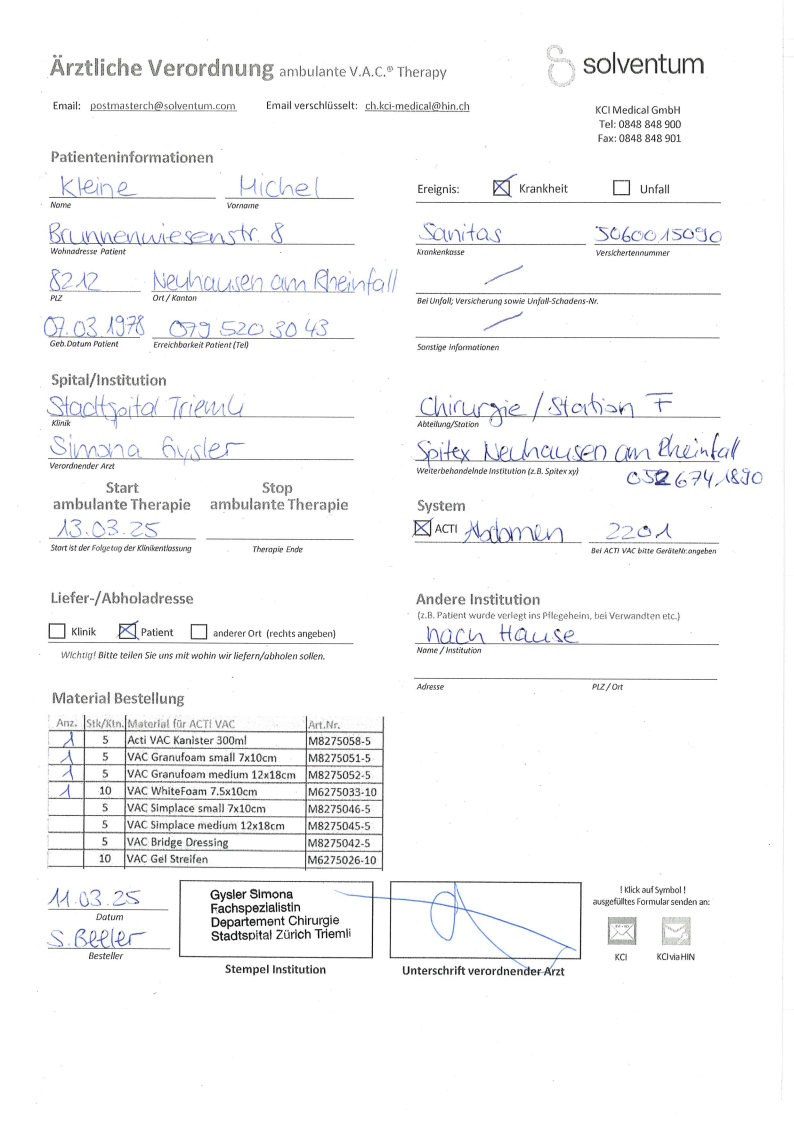 Ärztliche Verordnung ambulante V.A.C.® Therapy
solventum
Email: postmasterch@solventum.com Email verschlüsselt: ch.kci-medical@hin.ch
KCI Medical GmbH
Tel: 0848 848 900
Fax: 0848 848 901
Patienteninformationen
Kleine Michel
Name Vorname
Ereignis: Krankheit Unfall
Brunnenwiesenstr. 8
Wohnadresse Patient
Sanitas 5060015090
Krankenkasse Versichertennummer
8212 Neuhausen am Rheinfall
PLZ Ort / Kanton
Bei Unfall; Versicherung sowie Unfall-Schadens-Nr.
07.03.1978 079 520 30 43
Geb.Datum Patient Erreichbarkeit Patient (Tel)
Sonstige Informationen
Spital/Institution
Stadtspital Triemli
Klinik
Chirurgie / Station F
Abteilung/Station
Simona Gysler
Verordnender Arzt
Spitex Neuhausen am Rheinfall
Weiterbehandelnde Institution (z.B. Spitex xy)
052 674 18 90
Start
ambulante Therapie
Stop
ambulante Therapie
13.03.25
Start ist der Folgetag der Klinikentlassung Therapie Ende
System
ACTI Abdomen 2201
Bei ACTI VAC bitte GeräteNr.angeben
Liefer-/Abholadresse
Klinik Patient anderer Ort (rechts angeben)
Wichtig! Bitte teilen Sie uns mit wohin wir liefern/abholen sollen.
Andere Institution
(z.B. Patient wurde verlegt ins Pflegeheim, bei Verwandten etc.)
nach Hause
Name / Institution
Adresse PLZ / Ort
Material Bestellung
Anz. Stk/Ktn. Material für ACTI VAC Art.Nr.
1 5 Acti VAC Kanister 300ml M8275058-5
1 5 VAC Granufoam small 7x10cm M8275051-5
1 5 VAC Granufoam medium 12x18cm M8275052-5
1 10 VAC WhiteFoam 7.5x10cm M6275033-10
5 VAC Simplace small 7x10cm M8275046-5
5 VAC Simplace medium 12x18cm M8275045-5
5 VAC Bridge Dressing M8275042-5
10 VAC Gel Streifen M6275026-10
11.03.25
Datum
S. Beeler
Besteller
Gysler Simona
Fachspezialistin
Departement Chirurgie
Stadtspital Zürich Triemli
Stempel Institution
Unterschrift verordnender Arzt
! Klick auf Symbol !
ausgefülltes Formular senden an:
KCI KCI via HIN